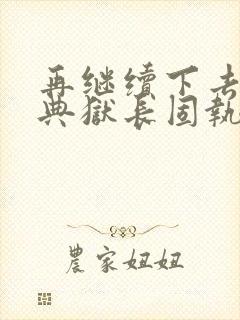 再继续下去
典獄长固執
農家妞妞